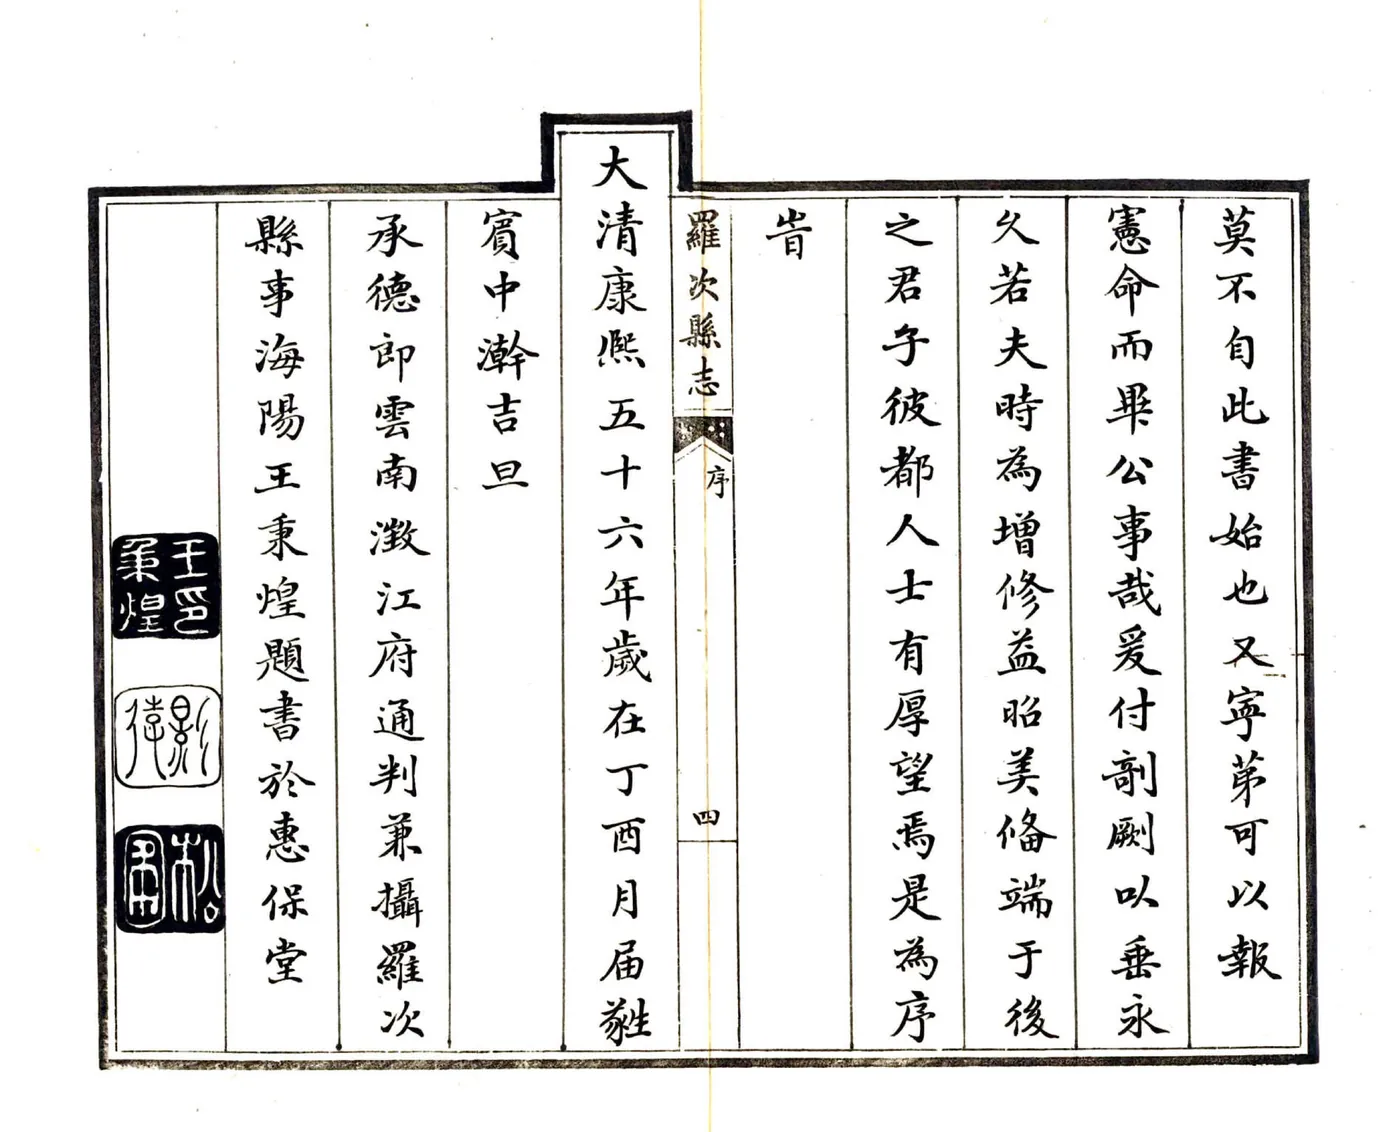 莫不自此書始也又寧苐可以報
憲命而畢公事哉爰付剞劂以垂永
久若夫時為增修益昭美俻端于後
之君子彼都人士有厚望焉是為序
旹
羅次縣志
序
四
大清康熙五十六年歲在丁酉月届甤
賓中澣吉旦
承德郎雲南澂江府通判兼攝羅次
縣事海陽王秉煌題書於惠保堂
王印秉煌